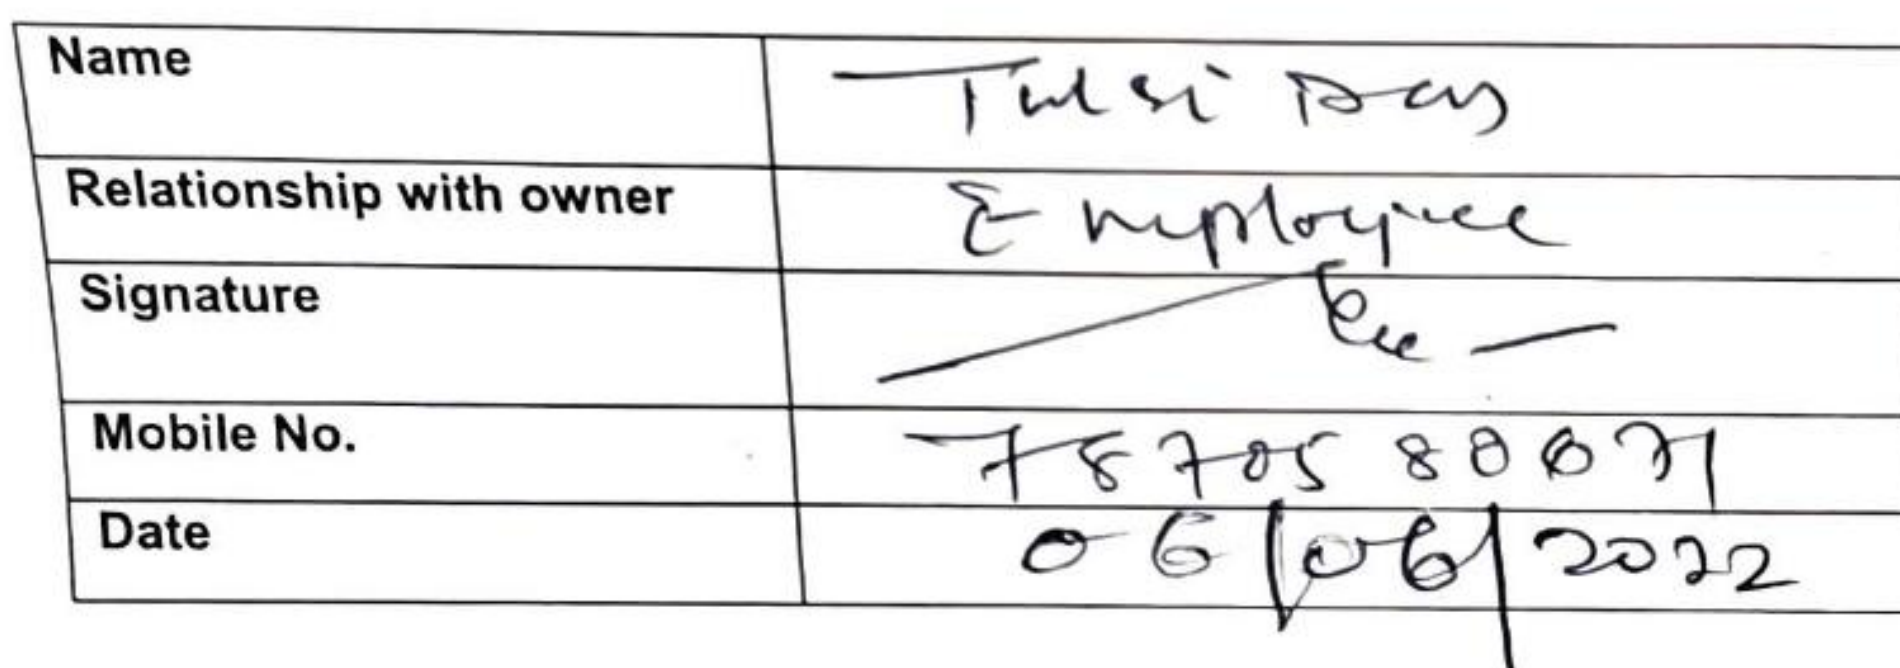 Name Tulsi Das
Relationship with owner Employee
Signature
Mobile No. 7870580071
Date 06/06/2022